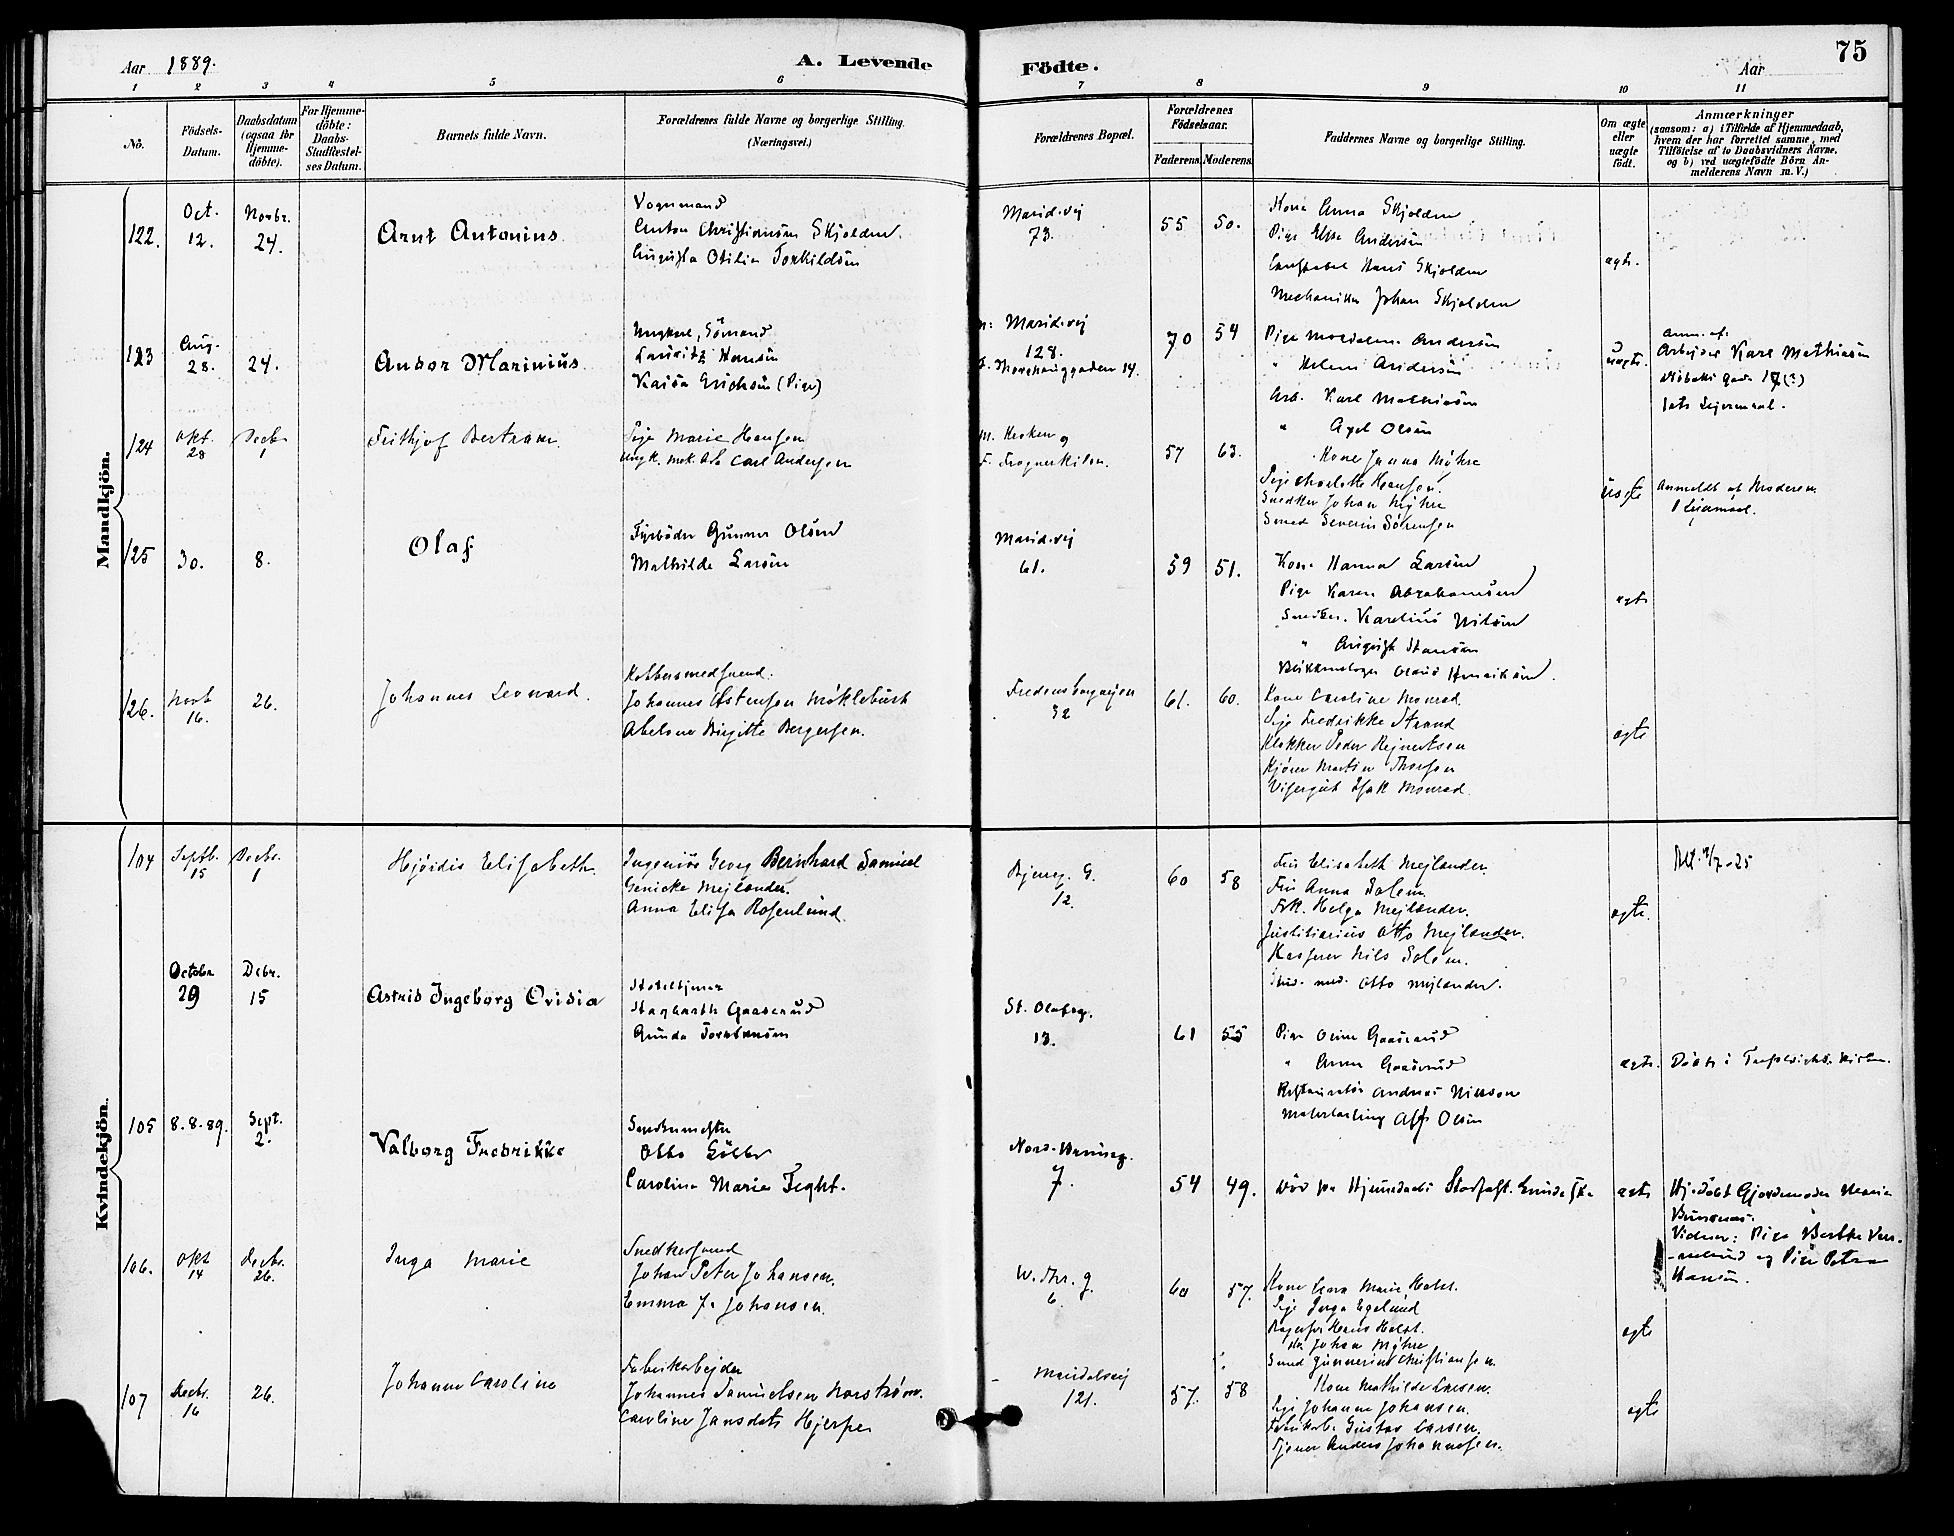 Aar 1889.
A. Levende
Födte.
Aar
75
1 2 3 4 5 6 7 8 9 10 11
No.
Födsels-
Datum.
Daabsdatum
(ogsaa för
Hjemme-
döbte).
For Hjemme-
döbte:
Daabs-
Stadfæstel-
ses Datum.
Barnets fulde Navn.
Forældrenes fulde Navne og borgerlige Stilling.
(Næringsvei.)
Forældrenes Bopæl.
Forældrenes
Födselsaar.
Faderens. Moderens.
Faddernes Navne og borgerlige Stilling.
Om ægte
eller
uægte
födt.
Anmærkninger
(saasom: a) i Tilfælde af Hjemmedaab,
hvem der har forrettet samme, med
Tilföielse af to Daabsvidners Navne,
og b) ved uægtefödte Börn An-
melderens Navn m. V.)
Mandkjön.
122. Oct. 12. Novbr. 24.
Arnt Antonius
Vognmand
Anton Christiansen Skjolden.
Augusta Otilia Torkildsen
Marid.vej
73.
55 50.
Kone Anna Skjolden
Pige Elise Andersen
Constabel Hans Skjolden
Mechaniker Johan Skjolden
ægte.
123 Aug. 28. 24.
Andor Marinius
Ungkarl, Sömand
Lauritz Hansen
Kaisa Erichsen (Pige)
M: Marid.vej
128.
F. 14.
70 54
Pige Andersen
" Helene Andersen
Arb. Karl Mathisen
" Axel Olsen
uægte.
Anm. af.
Arbejder Karl Mathisen
124 Okt. 28 Decbr 1
Frithjof Bertram.
Pige Marie Hansen
Ungk. mek. Arb Carl Andersen
M. Kroken 9
F. Frognerkilen.
57 63.
Kone Janna Myhre
Pige Charlotte Hansen.
Snedker Johan Myhre
Smed Severin Sörensen
uægte
Anmeldt af Moderen.
1 Leiermaal.
125 30. 8.
Olaf
Fyrböder Gunner Olsen
Mathilde Larsen
Marid.vej
61.
59 51.
Kone Hanna Larsen
Pige Karen Abrahamsen
Snedker. Karelius Nilsen
" August Hansen
Olaus Henriksen.
ægte
126. Novb 16. 26.
Johannes Leonard.
Kobbersmedsvend.
Johannes Østensen Møklebust
Abelone Birgitte Bergersen.
Fredensborgvejen
32
61. 60.
Kone Caroline Monrad.
Pige Fredrikke Strand
Klokker Peder Rejnertsen
Kjörer Martin Thorsen
Visergut Isak Monrad.
ægte
Kvindekjön.
104 Septb. 15 Decbr. 1
Hjördis Elisabeth.
Ingeniör Georg Bernhard Samuel
Genicke Mejlænder.
Anna Elisa Rosenlund.
Bjerreg. G.
12.
60 58
Fru Elisabeth Mejlænder.
Fru Anna Solem.
Frk. Helga Mejlænder.
Justitiarius Otto Mejlænder.
Kasserer Nils Solem.
Stud. med. Otto Mejlænder.
ægte.
Octobr 29 Debr. 15
Astrid Ingeborg Ovidia
Hoteltjener
Hagbarth Gaaserud
Gunda Torstensen
St. Olafsg.
13.
61 55
Pige Oline Gaaserud
" Anna Gaaserud
Restauratör Andreas Nilsson
Malerlærling Olsen
ægte.
105 8.8.89. Sept. 2.
Valborg Fredrikke
Otto
Caroline Marie Feght.
7.
54 49.
ægte
Hj.döbt Gjordemoder Maria
Vidner: Pige Berthe
og Pige Petra
Hansen.
106. Okt 14 Decbr. 26.
Inga Marie
Snedkersvend
Johan Peter Johansen.
Emma J. Johansen.
W. Thr. g.
6.
60 57.
Kone Lina Marie Holst.
Pige Inga Egelund
Bagersv. Hans Holst.
Johan Myhre
Smed Gunnerius Christiansen.
ægte
107 Decbr. 16 26.
Johanne Caroline
Fabrikarbejder
Johannes Samuelsen Norström.
Caroline Jansdatr Hjerpe
Maridalsvej
121.
57. 58
Kone Mathilde Larsen.
Pige Johanne Johansen.
Fabrikarb. Gustav Larsen.
Tjener Anders Johannesen.
ægte